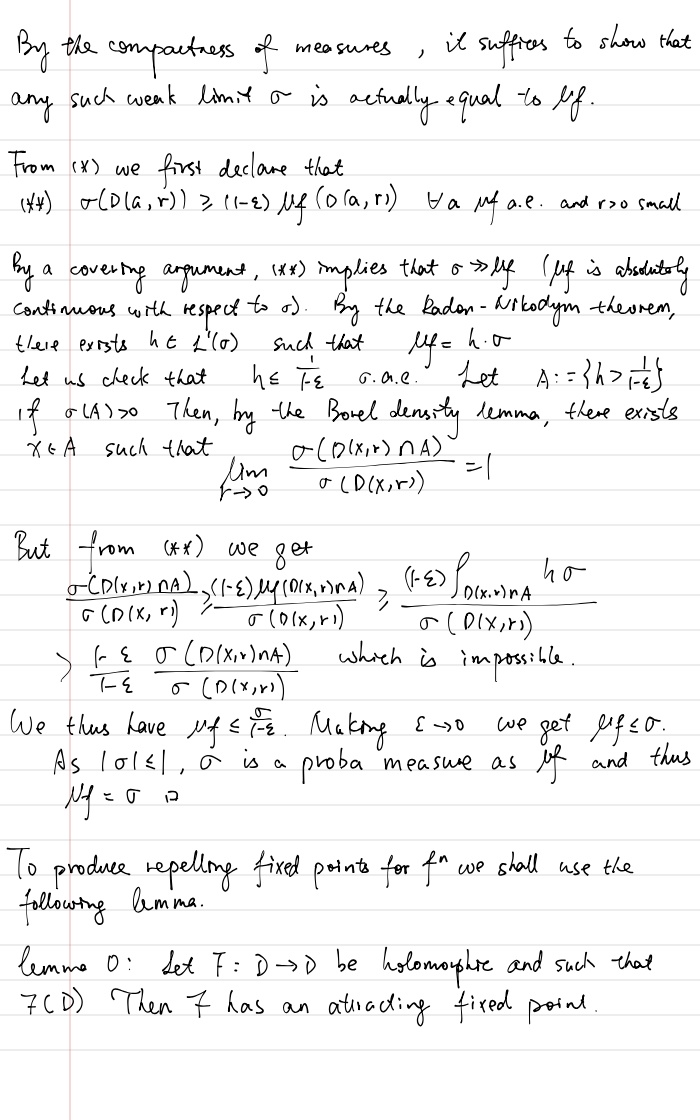 By the compactness of measures, it suffices to show that
any such weak limit σ is actually equal to μf.
From (*) we first declare that
(**) σ(D(a,r)) ≥ (1-ε) μf (D(a,r)) ∀a μf a.e. and r>0 small
By a covering argument, (**) implies that σ ≫ μf (μf is absolutely
continuous with respect to σ). By the Radon-Nikodym theorem,
there exists h ∈ L'(σ) such that μf = h·σ
Let us check that h ≤ 1/(1-ε) σ.a.e. Let A := {h > 1/(1-ε)}
if σ(A)>0 Then, by the Borel density lemma, there exists
x∈A such that lim_{r→0} σ(D(x,r)∩A) / σ(D(x,r)) = 1
But from (**) we get
σ(D(x,r)∩A) / σ(D(x,r)) ≥ (1-ε)μf(D(x,r)∩A) / σ(D(x,r)) ≥ (1-ε)∫_{D(x,r)∩A} hσ / σ(D(x,r))
> (1-ε)/(1-ε) σ(D(x,r)∩A) / σ(D(x,r)) which is impossible.
We thus have μf ≤ σ/(1-ε). Making ε→0 we get μf ≤ σ.
As |σ| ≤ 1, σ is a proba measure as μf and thus
μf = σ □
To produce repelling fixed points for fⁿ we shall use the
following lemma.
lemma 0: Let F: D→D be holomorphic and such that
F(D) Then F has an attracting fixed point.